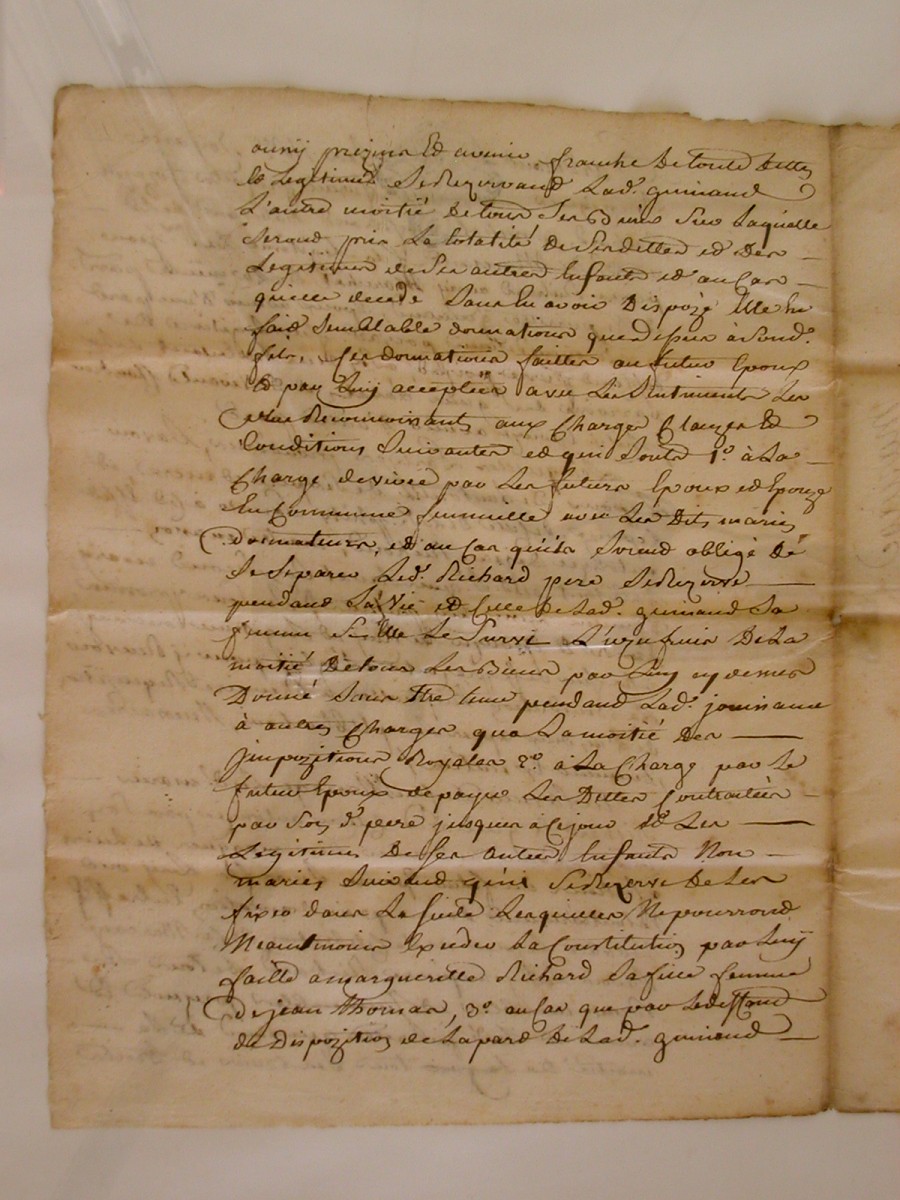 presens Et avenir franche De toutte Dettes
Et Legitimes Se Rezervand Lad. guinand
L'autre moitié De tous Ses Biens Sur Laquelle
Serond pris La totalité de Ses dettes et des
Legitimes de Ses autres Enfants et au Cas
quelle decede Sans En avoir Dispozé Elle En
faid Semblable donnations que dessus à Sond.
fils, Ces donnations faittes au futur Epoux
Et par Luy acceptées avec Les Sentiments Les
plus Reconnoissants aux Charges Clauzes Et
Conditions Suivantes et qui Sonts 1.° à La
Charge de vivre par Les futurs Epoux et Epouze
En Commune famille avec Les Dits mariés
Donnateurs, et au Cas qu'ils Soiend obligé de
Se Separer Led. Richard pere Se Rezerve
pendand Sa Vie et Celle De Lad. guinand Sa
femme Si Elle Le Survi L'uzufruit De La
moitié De tous Les Biens par Luy cy dessus
Donné Sans Etre tenue pendand Lad. jouissance
à autres Charges qua La moitié Des
jmpozitions Royales 2.° à La Charge par Le
futur Epoux de payer Les Dettes Contractées
par Son d. pere jusques à Ce jour Et Les
Legitimes De Ses autres Enfants Non
mariés Suivand qu'il Se Rezerve De Les
fixer dans La Suite Lesquelles Ne pourrond
Neantmoins Exceder La Constitution par Luy
faitte a margueritte Richard Sa fille femme
De jean Thomas, 3.° au Cas que par Le deffaud
de Dispozition de La pard De Lad. guinand